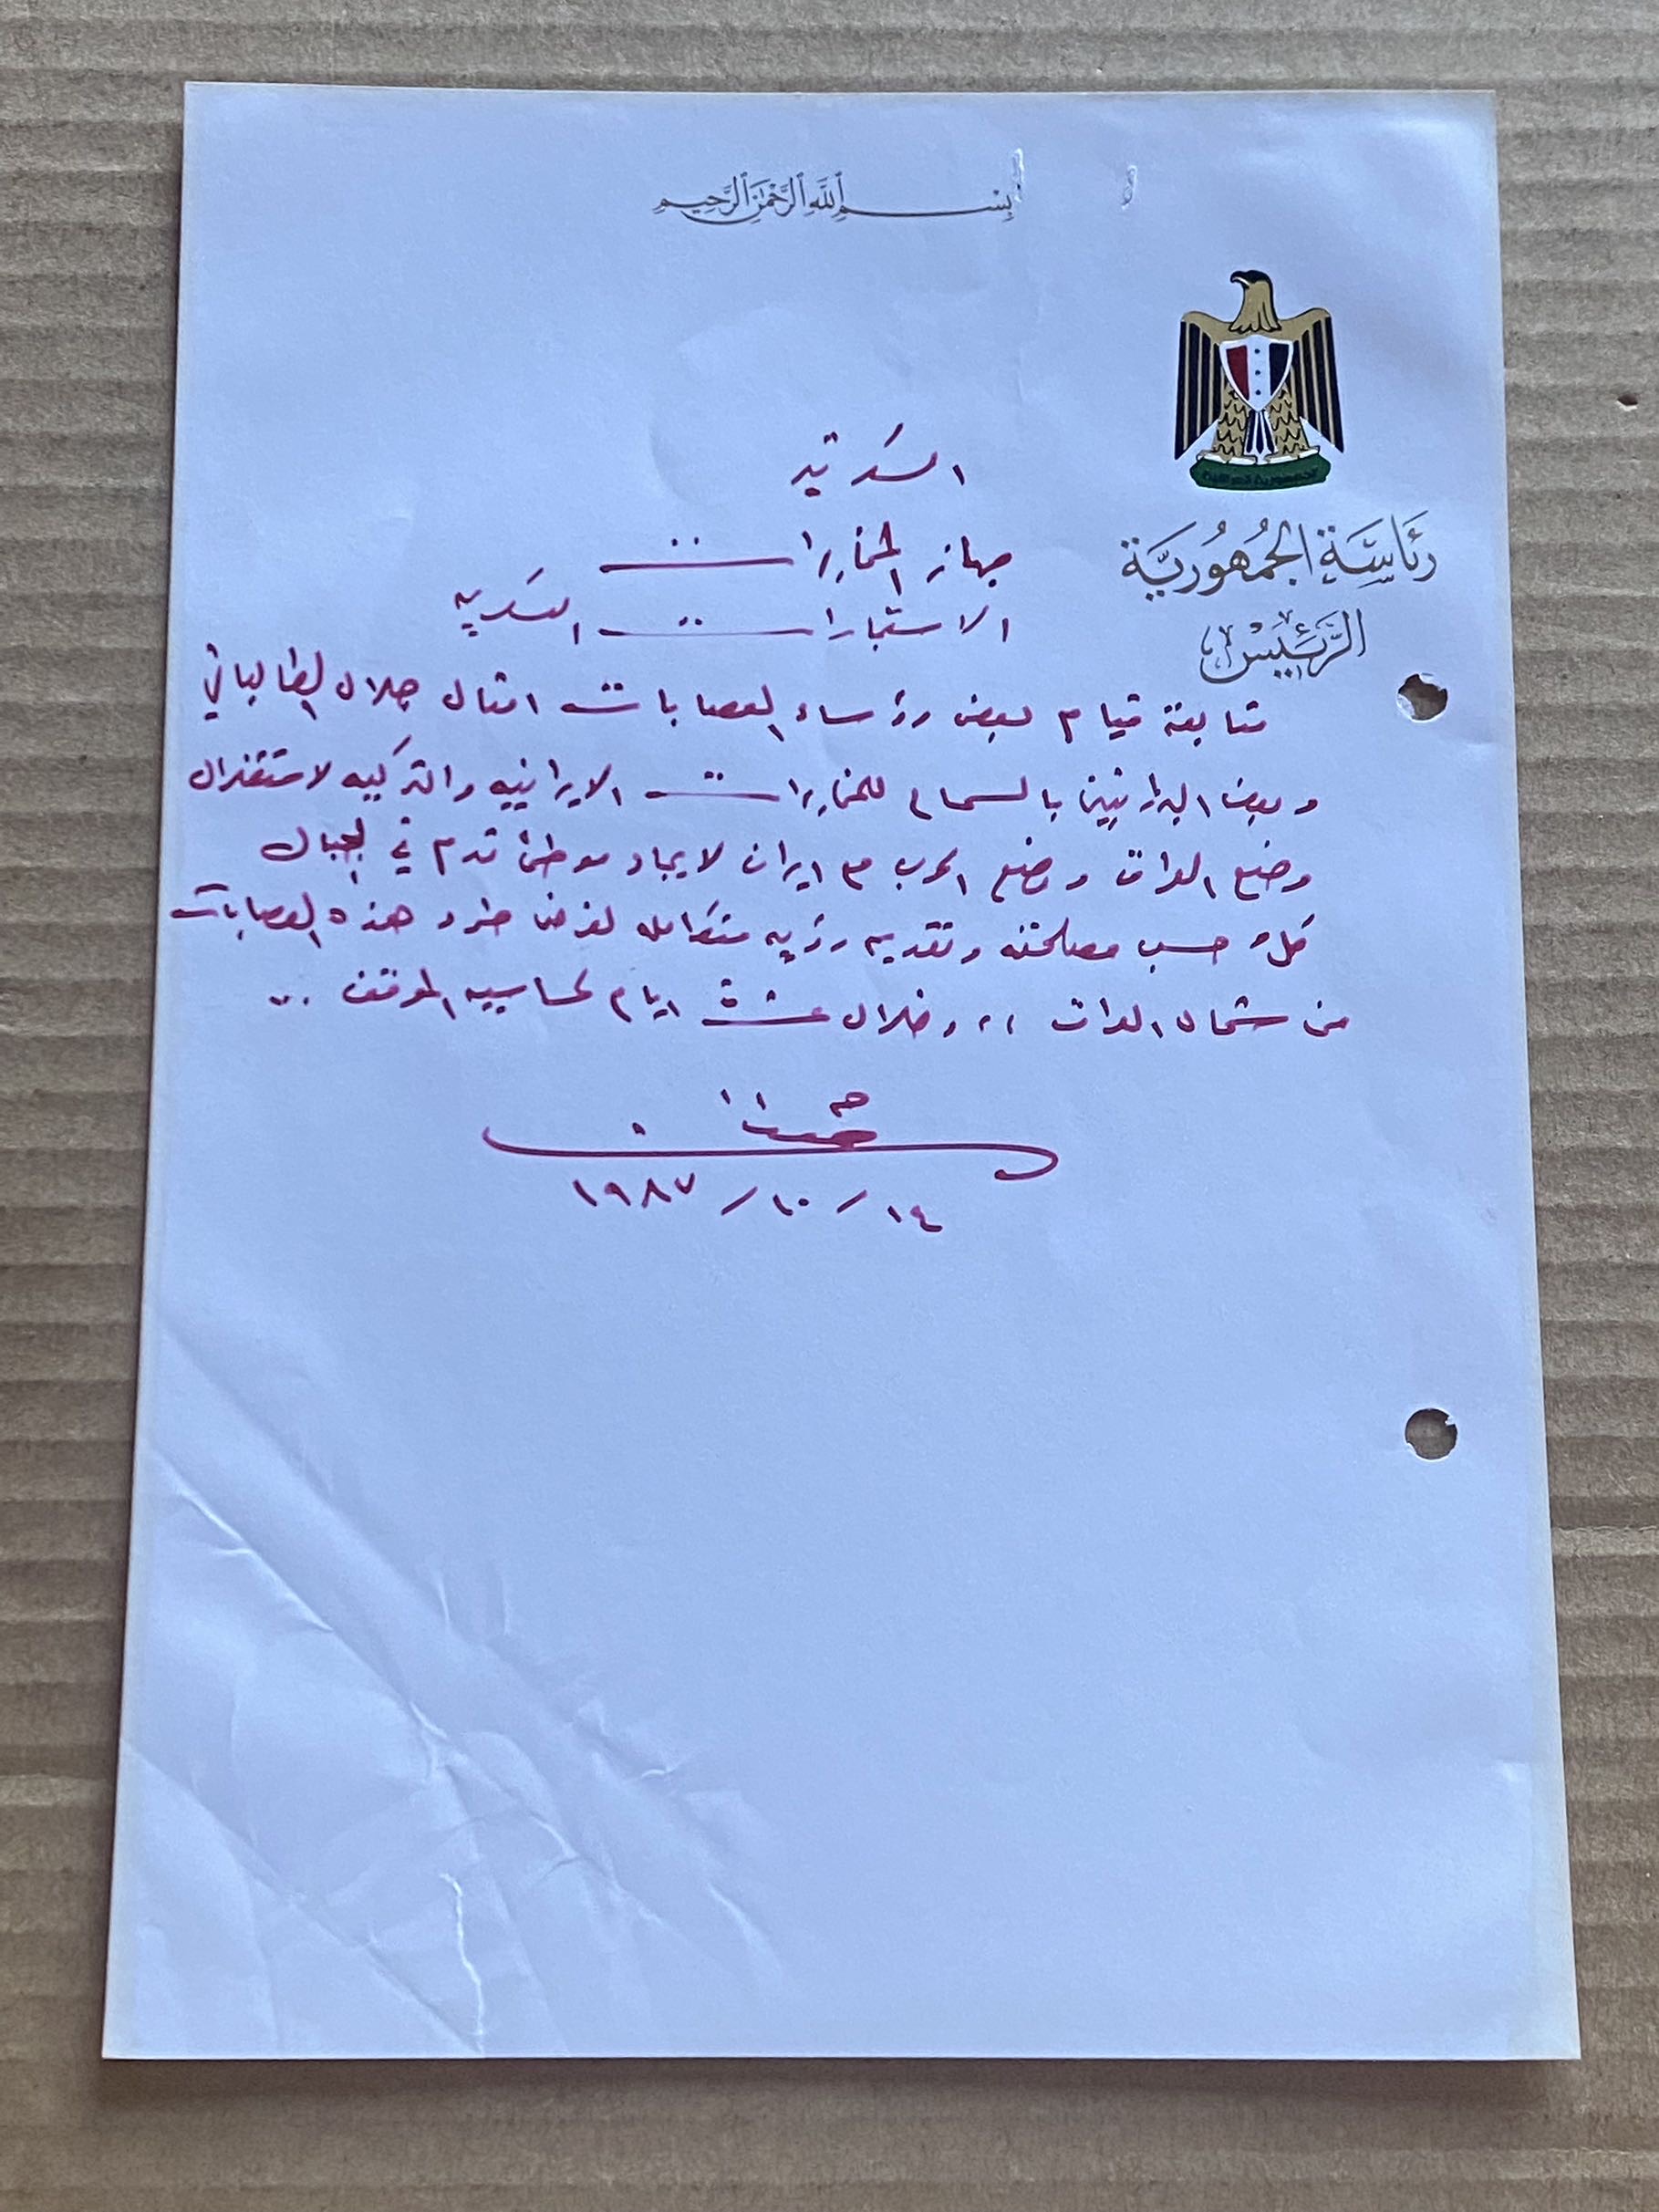 بسم الله الرحمن الرحيم
الجمهورية العراقية
رئاسة الجمهورية
الرئيس
جهاز المخابرات
الاستخبارات العسكريه
متابعة قيام بعض رؤساء العصابات امثال جلال الطالباني
وبعض البارزانيين بالسماح للمخابرات الايرانييه والتركييه لاستغلال
وضع العراق ووضع الحرب مع ايران لايجاد موطئ قدم في الجبال
كلاً حسب مصلحته وتقديم رؤيه متكامله لغرض طرد هذه العصابات
من شمال العراق ،، وخلال عشرة ايام لحساسيه الموقف ..
١٤ / ١٠ / ١٩٨٧